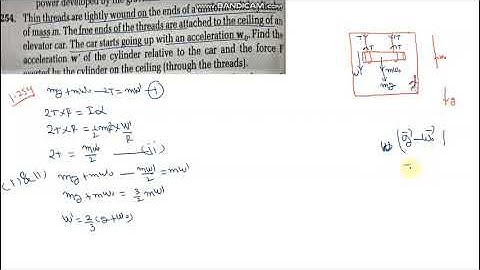 power developed by the gra
RANDICAM.COM
254. Thin threads are tightly wound on the ends of a
of mass m. The free ends of the threads are attached to the ceiling of an
elevator car. The car starts going up with an acceleration w₀. Find the
acceleration w' of the cylinder relative to the car and the force F
exerted by the cylinder on the ceiling (through the threads).
1.254
mg + mw₀ - 2T = mw' (i)
2T×R = Iα
2T×R = ½mR² × w'/R
2T = mw'/2 (ii)
(i) & (ii)
mg + mw₀ - mw'/2 = mw'
mg + mw₀ = 3/2 mw'
w' = 2/3 (g + w₀)
T T
T T
w'
mw₀
mg
w₀
g
(g⃗ - w⃗₀)